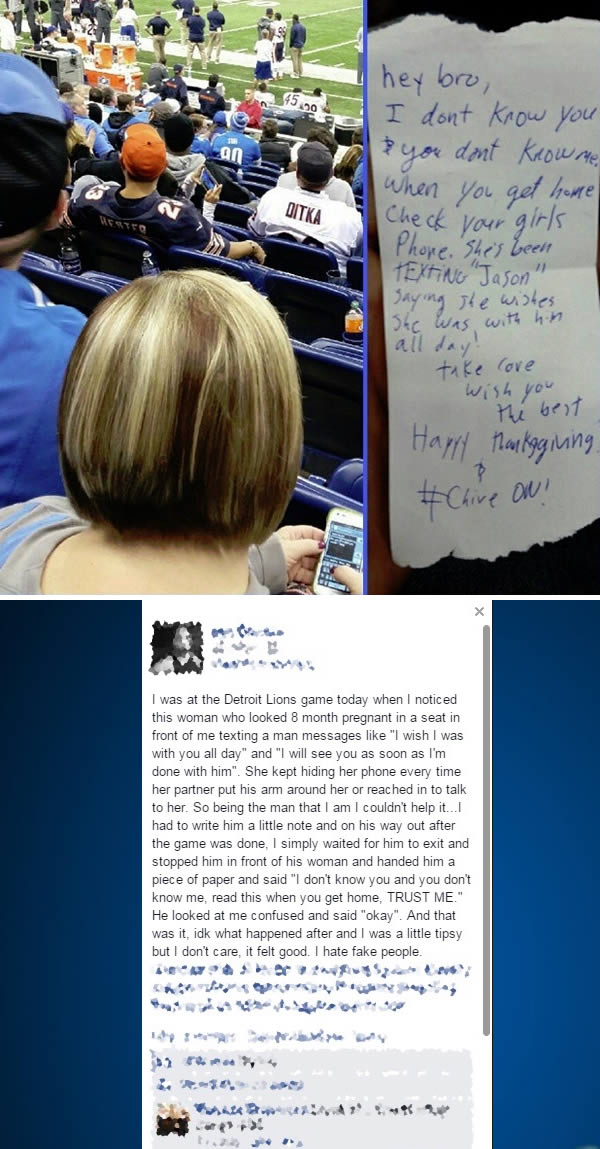 HESTER
2
DITKA
90
45
hey bro,
I dont know you
& you dont know me.
When you get home
Check your girls
Phone. She's been
TEXTING "Jason"
Saying she wishes
She was with him
all day!
take care
wish you
the best
Happy Thanksgiving
&
#Chive ON!
I was at the Detroit Lions game today when I noticed
this woman who looked 8 month pregnant in a seat in
front of me texting a man messages like "I wish I was
with you all day" and "I will see you as soon as I'm
done with him". She kept hiding her phone every time
her partner put his arm around her or reached in to talk
to her. So being the man that I am I couldn't help it...I
had to write him a little note and on his way out after
the game was done, I simply waited for him to exit and
stopped him in front of his woman and handed him a
piece of paper and said "I don't know you and you don't
know me, read this when you get home, TRUST ME."
He looked at me confused and said "okay". And that
was it, idk what happened after and I was a little tipsy
but I don't care, it felt good. I hate fake people.